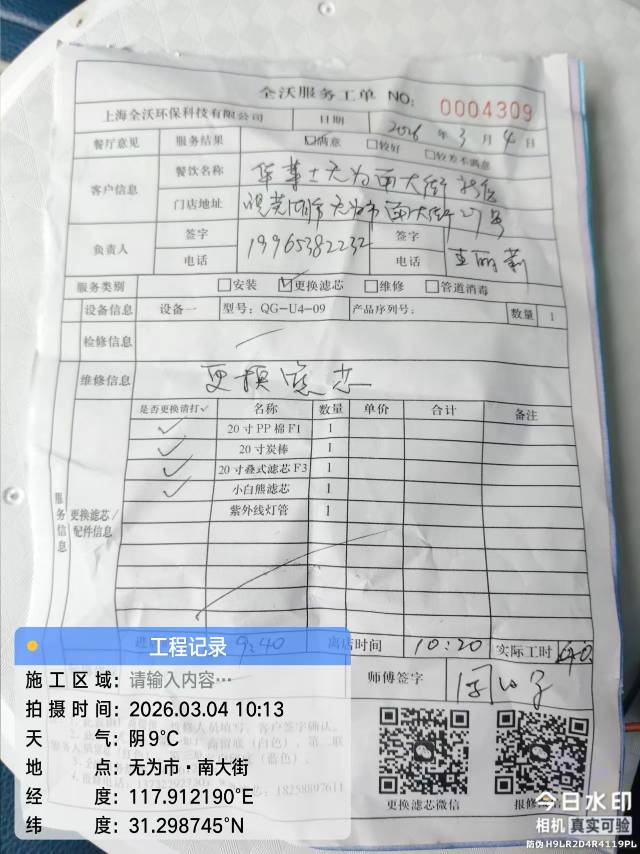 全沃服务工单 NO: 0004309
上海全沃环保科技有限公司 日期 2026 年 3 月 4 日
餐厅意见 服务结果 ☑满意 □较好 □较差不满意
客户信息 餐饮名称 华莱士无为南大街
门店地址 无为市南大街
负责人 签字 签字
电话 19965382232 电话
服务类别 □安装 ☑更换滤芯 □维修 □管道消毒
设备信息 设备一 型号: QG-U4-09 产品序列号: 数量 1
检修信息
维修信息 更换滤芯
服务信息 更换滤芯/配件信息
是否更换请打✓ 名称 数量 单价 合计 备注
✓ 20寸PP棉F1 1
✓ 20寸炭棒 1
✓ 20寸叠式滤芯F3 1
✓ 小白熊滤芯 1
紫外线灯管 1
9:40 离店时间 10:20 实际工时
师傅签字
18258897611
更换滤芯微信
工程记录
施工区域: 请输入内容…
拍摄时间: 2026.03.04 10:13
天气: 阴9°C
地点: 无为市·南大街
经度: 117.912190°E
纬度: 31.298745°N
今日水印
相机 真实可验
防伪 H9LR2D4R4119PL